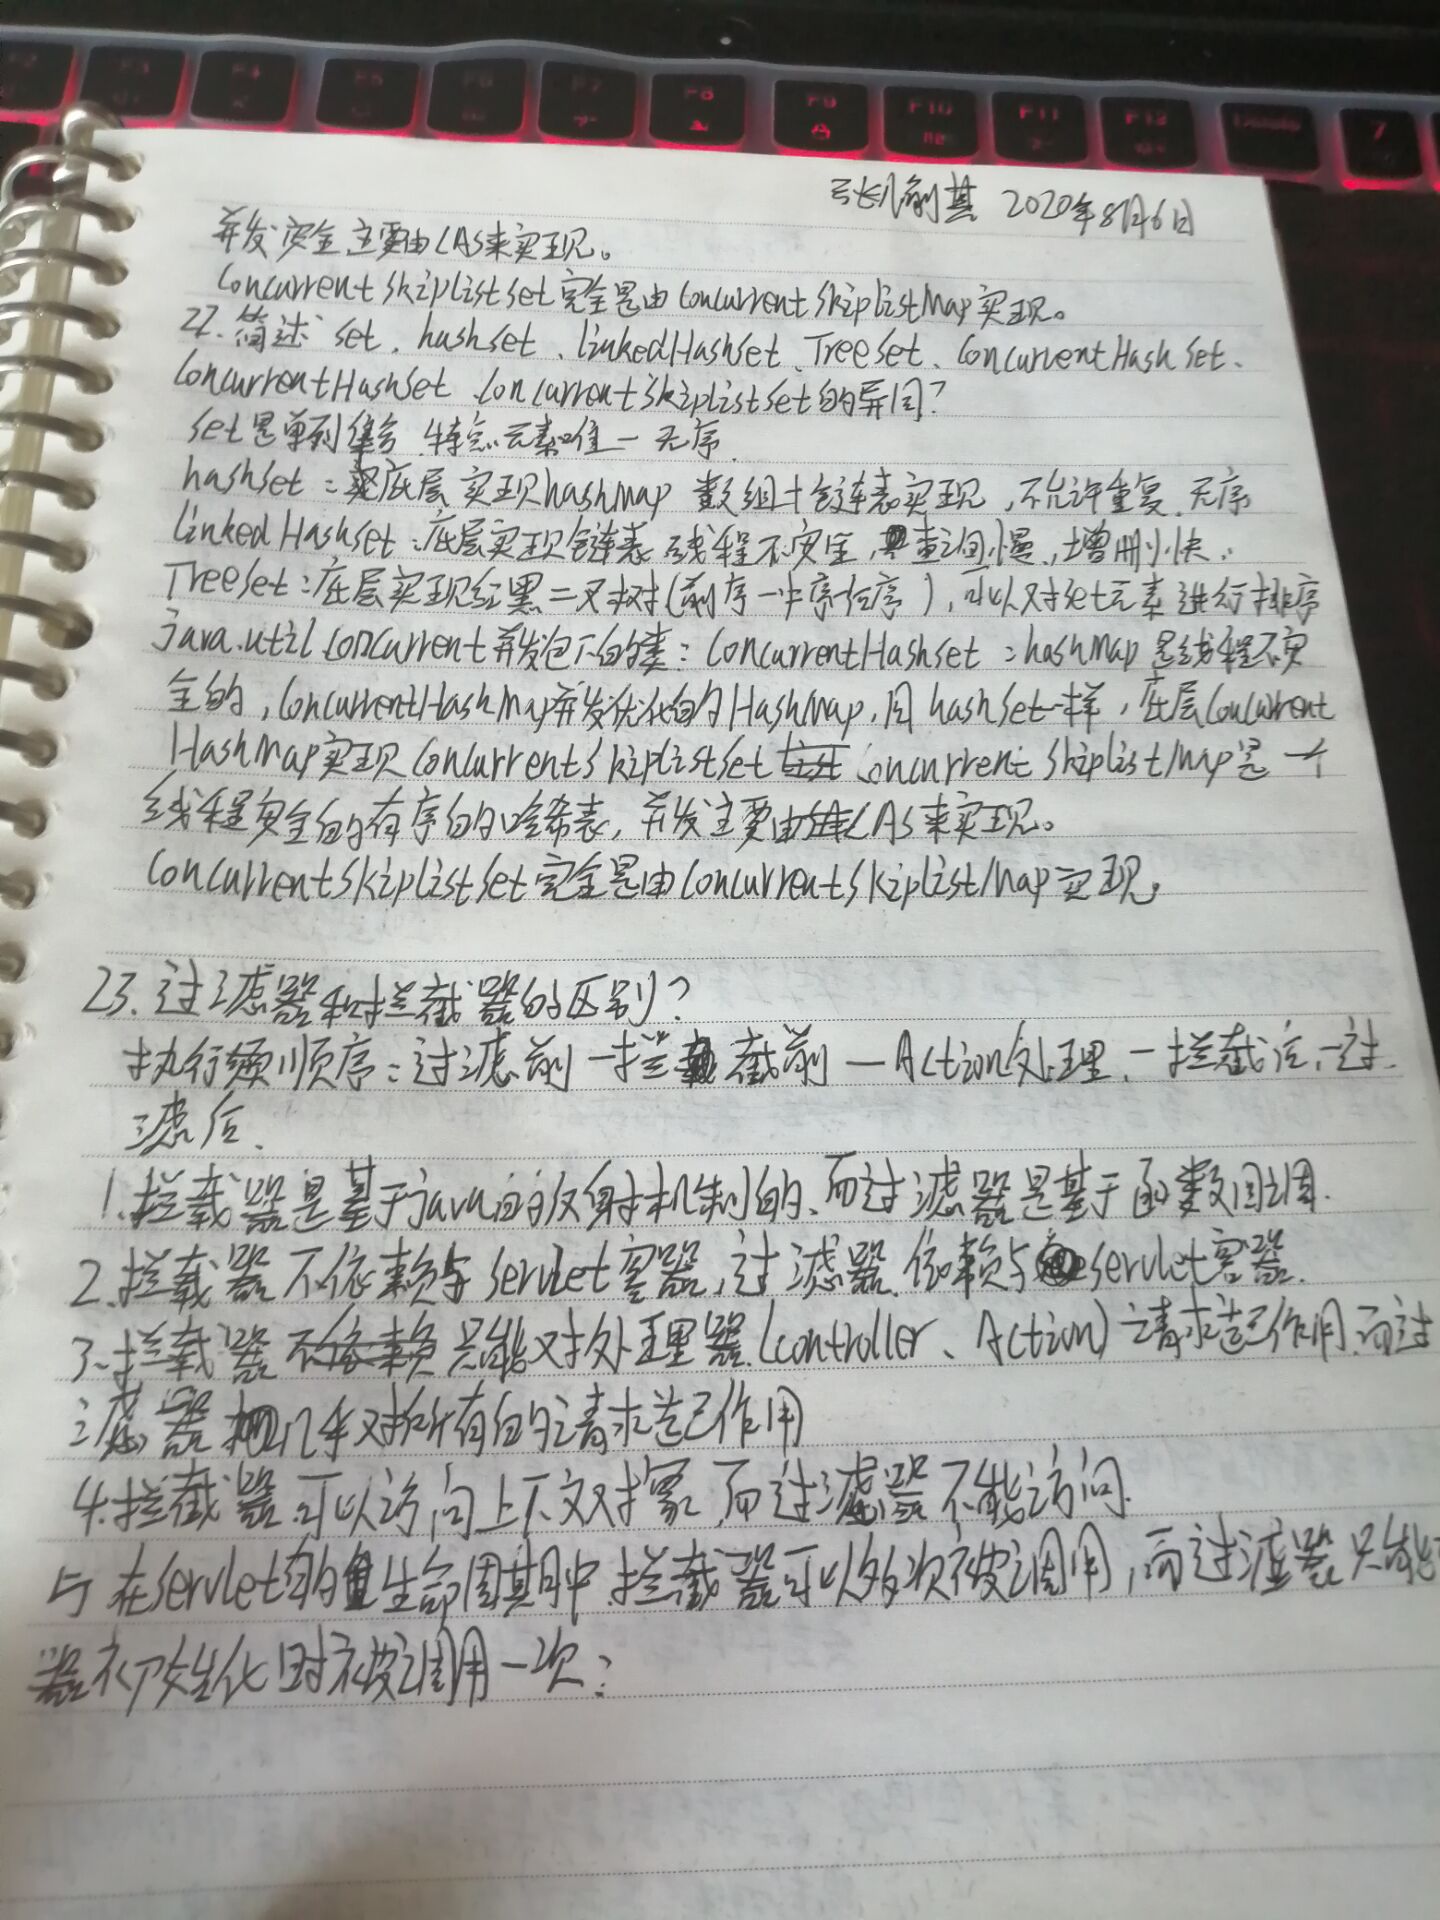 F3 F4 F5 F6 F7 F8 F9 F10 F11 F12 Delete 7
2020年8月6日
并发安全主要由CAS来实现。
ConcurrentSkipListSet完全是由ConcurrentSkipListMap实现。
22.简述 set、hashset、linkedHashSet、TreeSet、ConcurrentHashSet、
ConcurrentHashSet、ConcurrentSkipListSet的异同?
set是单列集合,特点:元素唯一 无序.
hashset:底层实现hashmap 数组+链表实现,不允许重复.无序
linkedHashset:底层实现链表 线程不安全,查询慢,增删快.
TreeSet:底层实现红黑二叉树(前序一中序后序),可以对set元素进行排序
java.util.concurrent并发包下的类:ConcurrentHashset:hashMap是线程不安
全的,ConcurrentHashMap并发优化的HashMap,同hashSet一样,底层Concurrent
HashMap实现ConcurrentSkipListSet ConcurrentSkipListMap是一个
线程安全的有序的哈希表,并发主要由CAS来实现。
ConcurrentSkipListSet完全是由ConcurrentSkipListMap实现。
23.过滤器和拦截器的区别?
执行顺序:过滤前一拦截前一Action处理.一拦截后.一过
滤后.
1.拦截器是基于java的反射机制的、而过滤器是基于函数回调.
2.拦截器不依赖与servlet容器,过滤器依赖与servlet容器.
3.拦截器只能对处理器(controller、Action)请求起作用.而过
滤器几乎对所有的请求起作用
4.拦截器可以访问上下文对象,而过滤器不能访问.
5 在servlet的生命周期中拦截器可以多次被调用,而过滤器只能
器初始化时被调用一次: